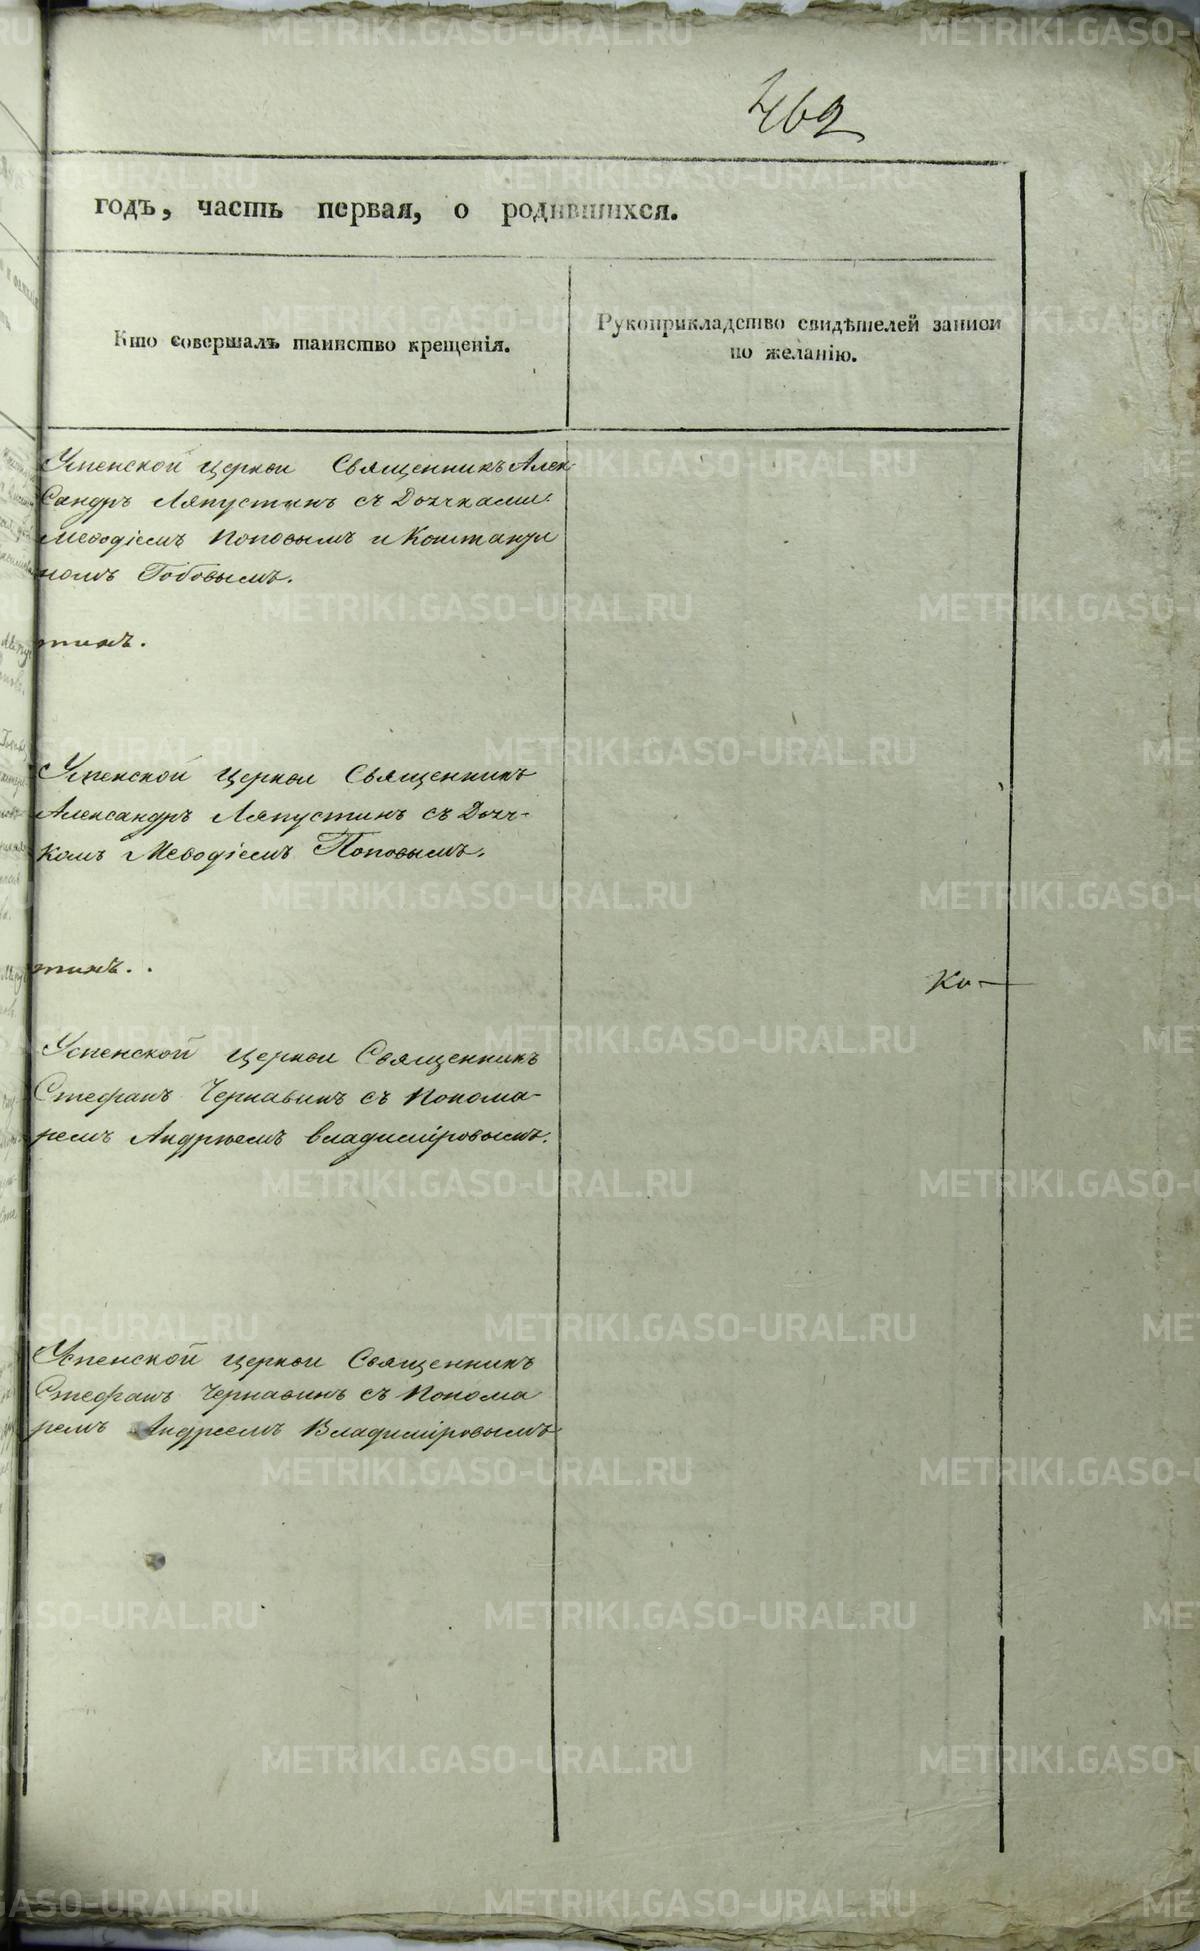 462
годъ, часть первая, о родившихся.
Кто совершалъ таинство крещенія.
Рукоприкладство свидѣтелей записи
по желанію.
Успенской церкви Священникъ Алек
сандръ Ляпустинъ съ Дьячками
Меѳодіемъ Поповымъ и Константи
номъ Гобовымъ.
тинъ.
Успенской церкви Священникъ
Александръ Ляпустинъ съ Дьяч-
комъ Меѳодіемъ Поповымъ.
тинъ.
Ко-
Успенской церкви Священникъ
Стефанъ Чернавинъ съ Понома-
ремъ Андреемъ Владиміровымъ.
Успенской церкви Священникъ
Стефанъ Чернавинъ съ Понома
ремъ Андреемъ Владиміровымъ
METRIKI.GASO-URAL.RU